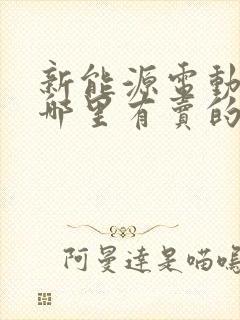 新能源電動
哪里有賣的
阿曼達是喵嗚